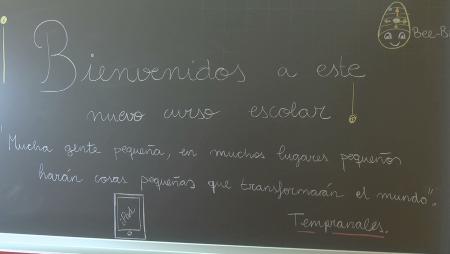 ¡Bienvenidos a este
nuevo curso escolar!
"Mucha gente pequeña, en muchos lugares pequeños
harán cosas pequeñas que transformarán el mundo".
Tempranales.
iPad
Bee-B